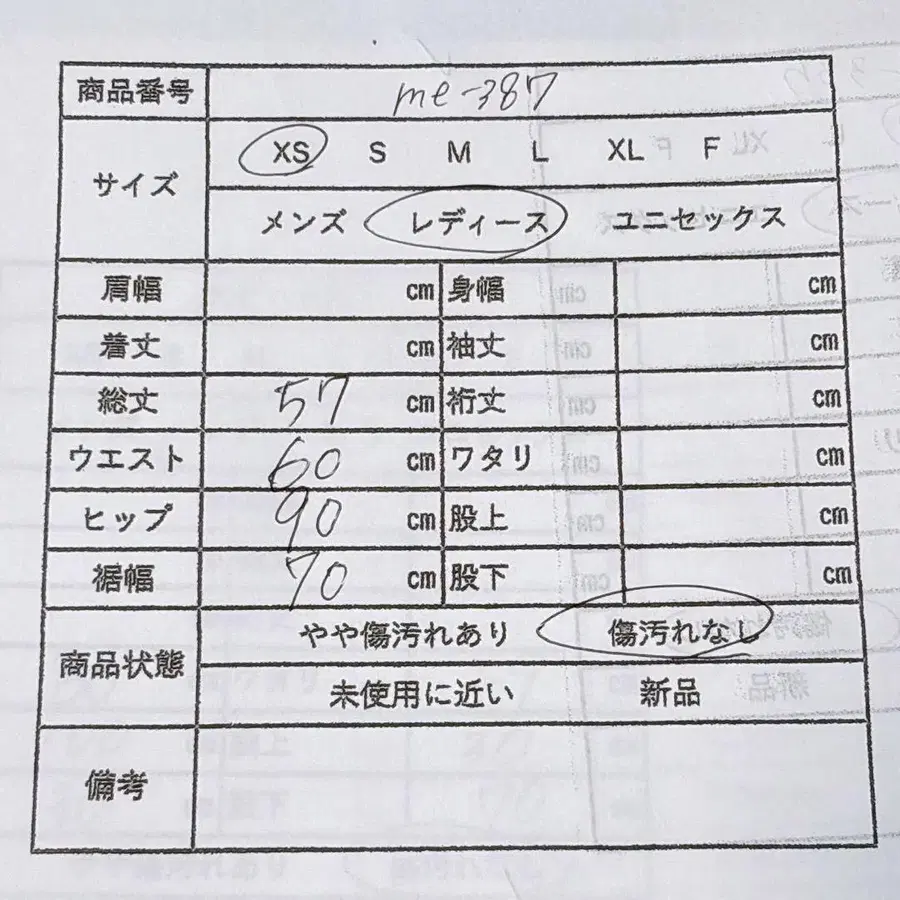 商品番号 me-387
サイズ XS S M L XL F
メンズ レディース ユニセックス
肩幅 cm 身幅 cm
着丈 cm 袖丈 cm
総丈 57 cm 裄丈 cm
ウエスト 60 cm ワタリ cm
ヒップ 90 cm 股上 cm
裾幅 70 cm 股下 cm
商品状態 やや傷汚れあり 傷汚れなし
未使用に近い 新品
備考